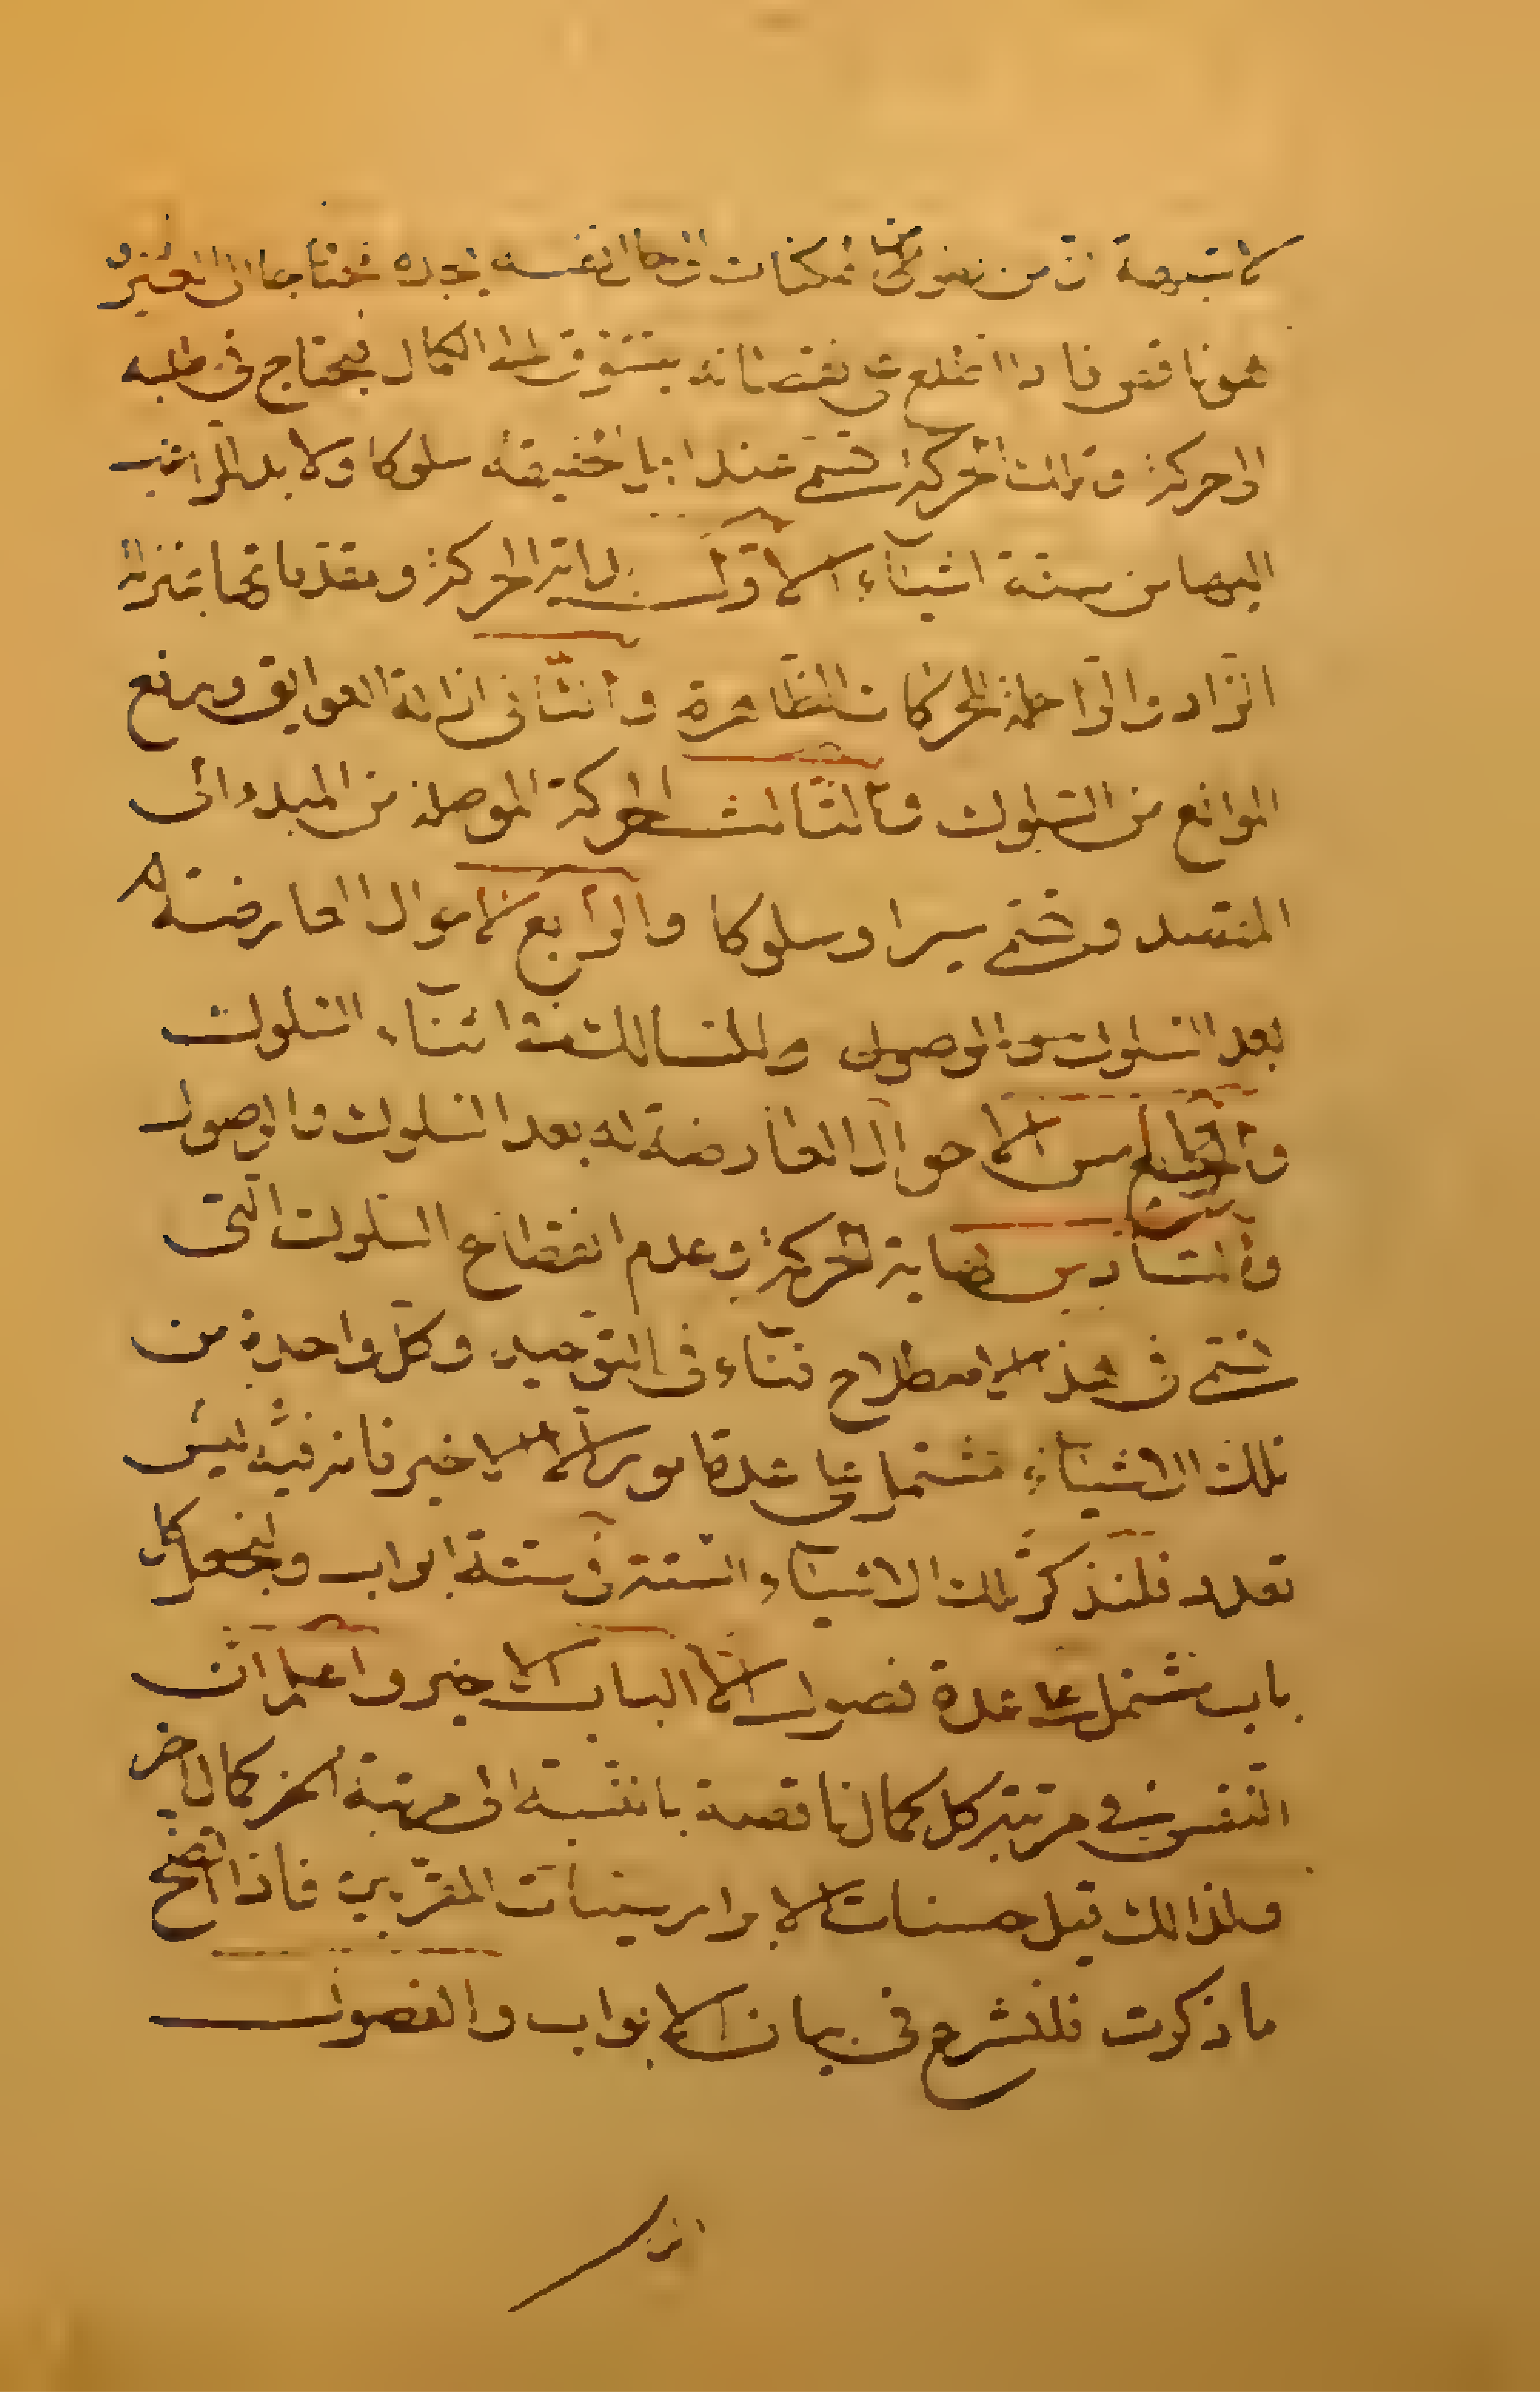 لا شبهة ان من نظر من الممكنات الى حال نفسه يجده محتاجا الى الغير و
هو ناقص فاذا اطلع على نقصانه يتشوق له الكمال فيحتاج فى طلبه
الى حركة وتلك الحركة تسمى عند اهل الحقيقة سلوكا ولا بد للراغب
اليها من ستة اشياء الاول بداية الحركة ومقدماتها بمنزلة
الزاد والراحلة للحركات الظاهرة والثانى ازالة العوايق ورفع
الموانع من السلوك والثالث الحركة الموصلة من المبدء الى
المقصد وتسمى سيرا وسلوكا والرابع الاحوال العارضة
بعد السلوك والوصول وللسالك فى اثناء السلوك
والخامس الاحوال العارضة له بعد السلوك والوصول
والسادس نهاية الحركة وعدم انقطاع السلوك التى
تسمى فى هذا الاصطلاح فناء فى التوحيد وكل واحدة من
تلك الاشياء تشتمل على عدة امور الا الاخير فانه فيه ليس
تعدد فلنذكر تلك الاشياء الستة فى ستة ابواب ونجعل كل
باب مشتمل على عدة فصول الا الباب الاخير واعلم ان
النفوس فى مرتبة كل كمال ناقصة بالنسبة الى مرتبة كمال اخر
ولذالك قيل حسنات الابرار سيئات المقربين فاذا اتضح
ما ذكرت فلنشرع فى بيان الابواب والفصول